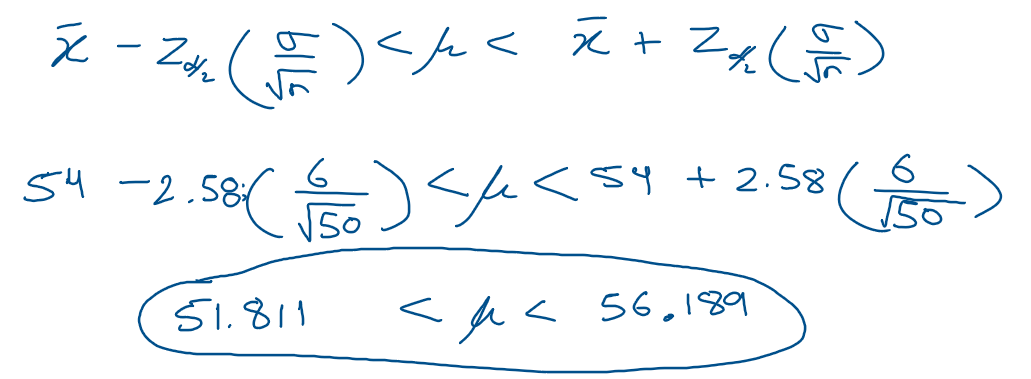 x̄ - Z_{α/2} (σ/√n) < μ < x̄ + Z_{α/2} (σ/√n)
54 - 2.58 (6/√50) < μ < 54 + 2.58 (6/√50)
51.811 < μ < 56.189